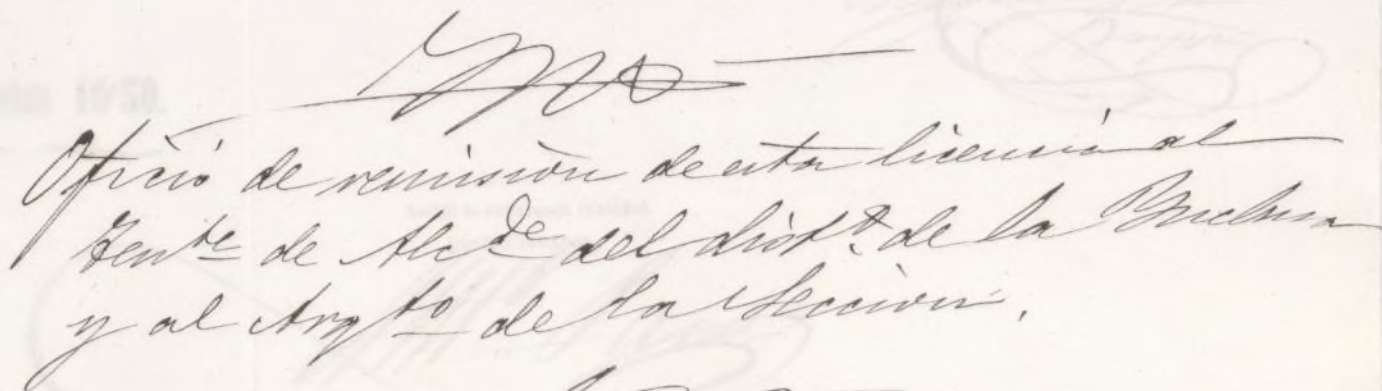 Oficio de remisión de esta licencia al
Tente de Alcde del distto de la Inclusa
y al Arqto de la Sección.